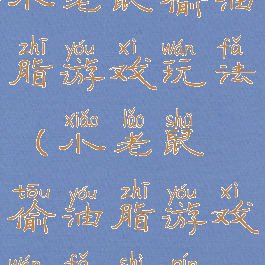 小老鼠偷油
zhī yóu xì wán fǎ
脂游戏玩法
xiǎo lǎo shǔ
(小老鼠
tōu yóu zhī yóu xì
偷油脂游戏
wán fǎ shì pín